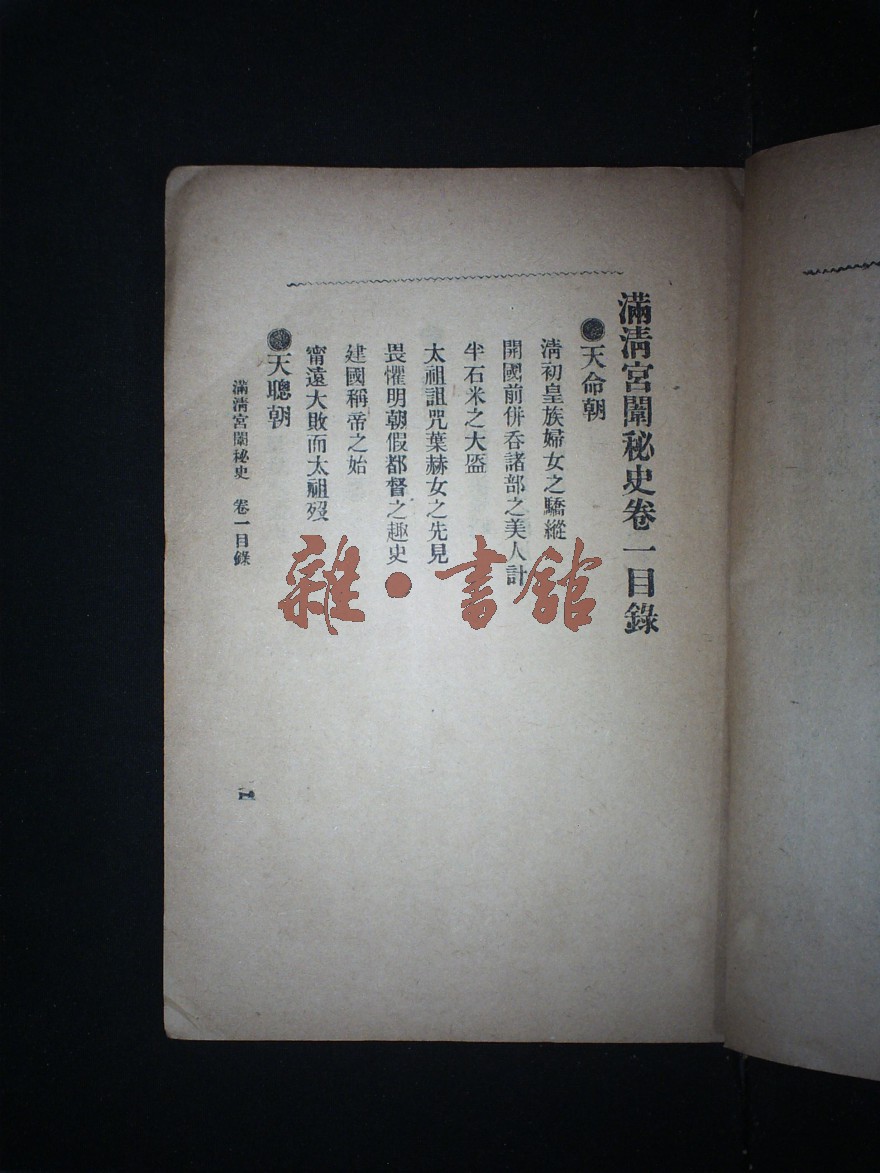 滿清宮闈秘史卷一目錄
●天命朝
清初皇族婦女之驕縱
開國前併吞諸部之美人計
半石米之大盜
太祖詛咒葉赫女之先見
畏懼明朝假都督之趣史
建國稱帝之始
甯遠大敗而太祖歿
●天聰朝
滿清宮闈秘史 卷一目錄
一
雜·書館